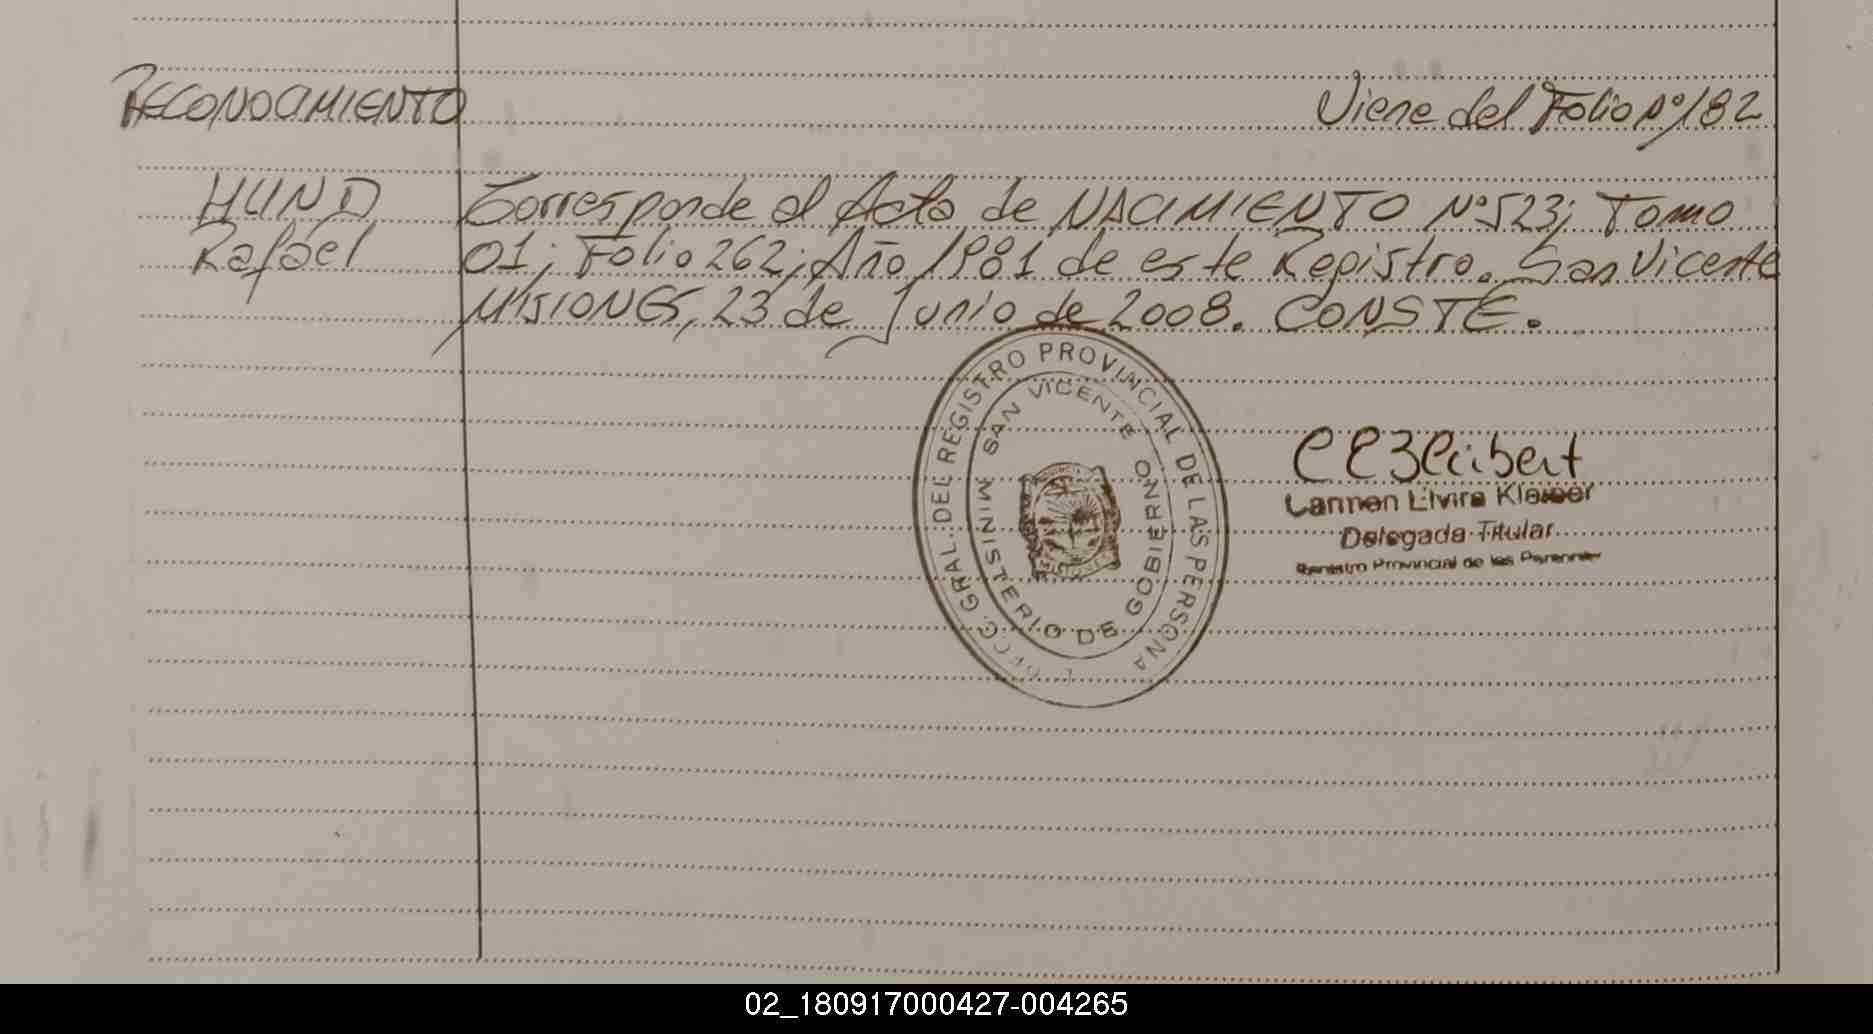 RECONOCIMIENTO
Viene del Folio Nº 182
HUND
Rafael
Corresponde al Acta de NACIMIENTO Nº 523; Tomo
01; Folio 262; Año 1981 de este Registro. San Vicente
MISIONES, 23 de Junio de 2008. CONSTE.
GRAL. DEL REGISTRO PROVINCIAL DE LAS PERSONA
SAN VICENTE
MINISTERIO DE GOBIERNO
Carmen Elvira
Delegada Titular
Registro Provincial de las Personas
02_180917000427-004265